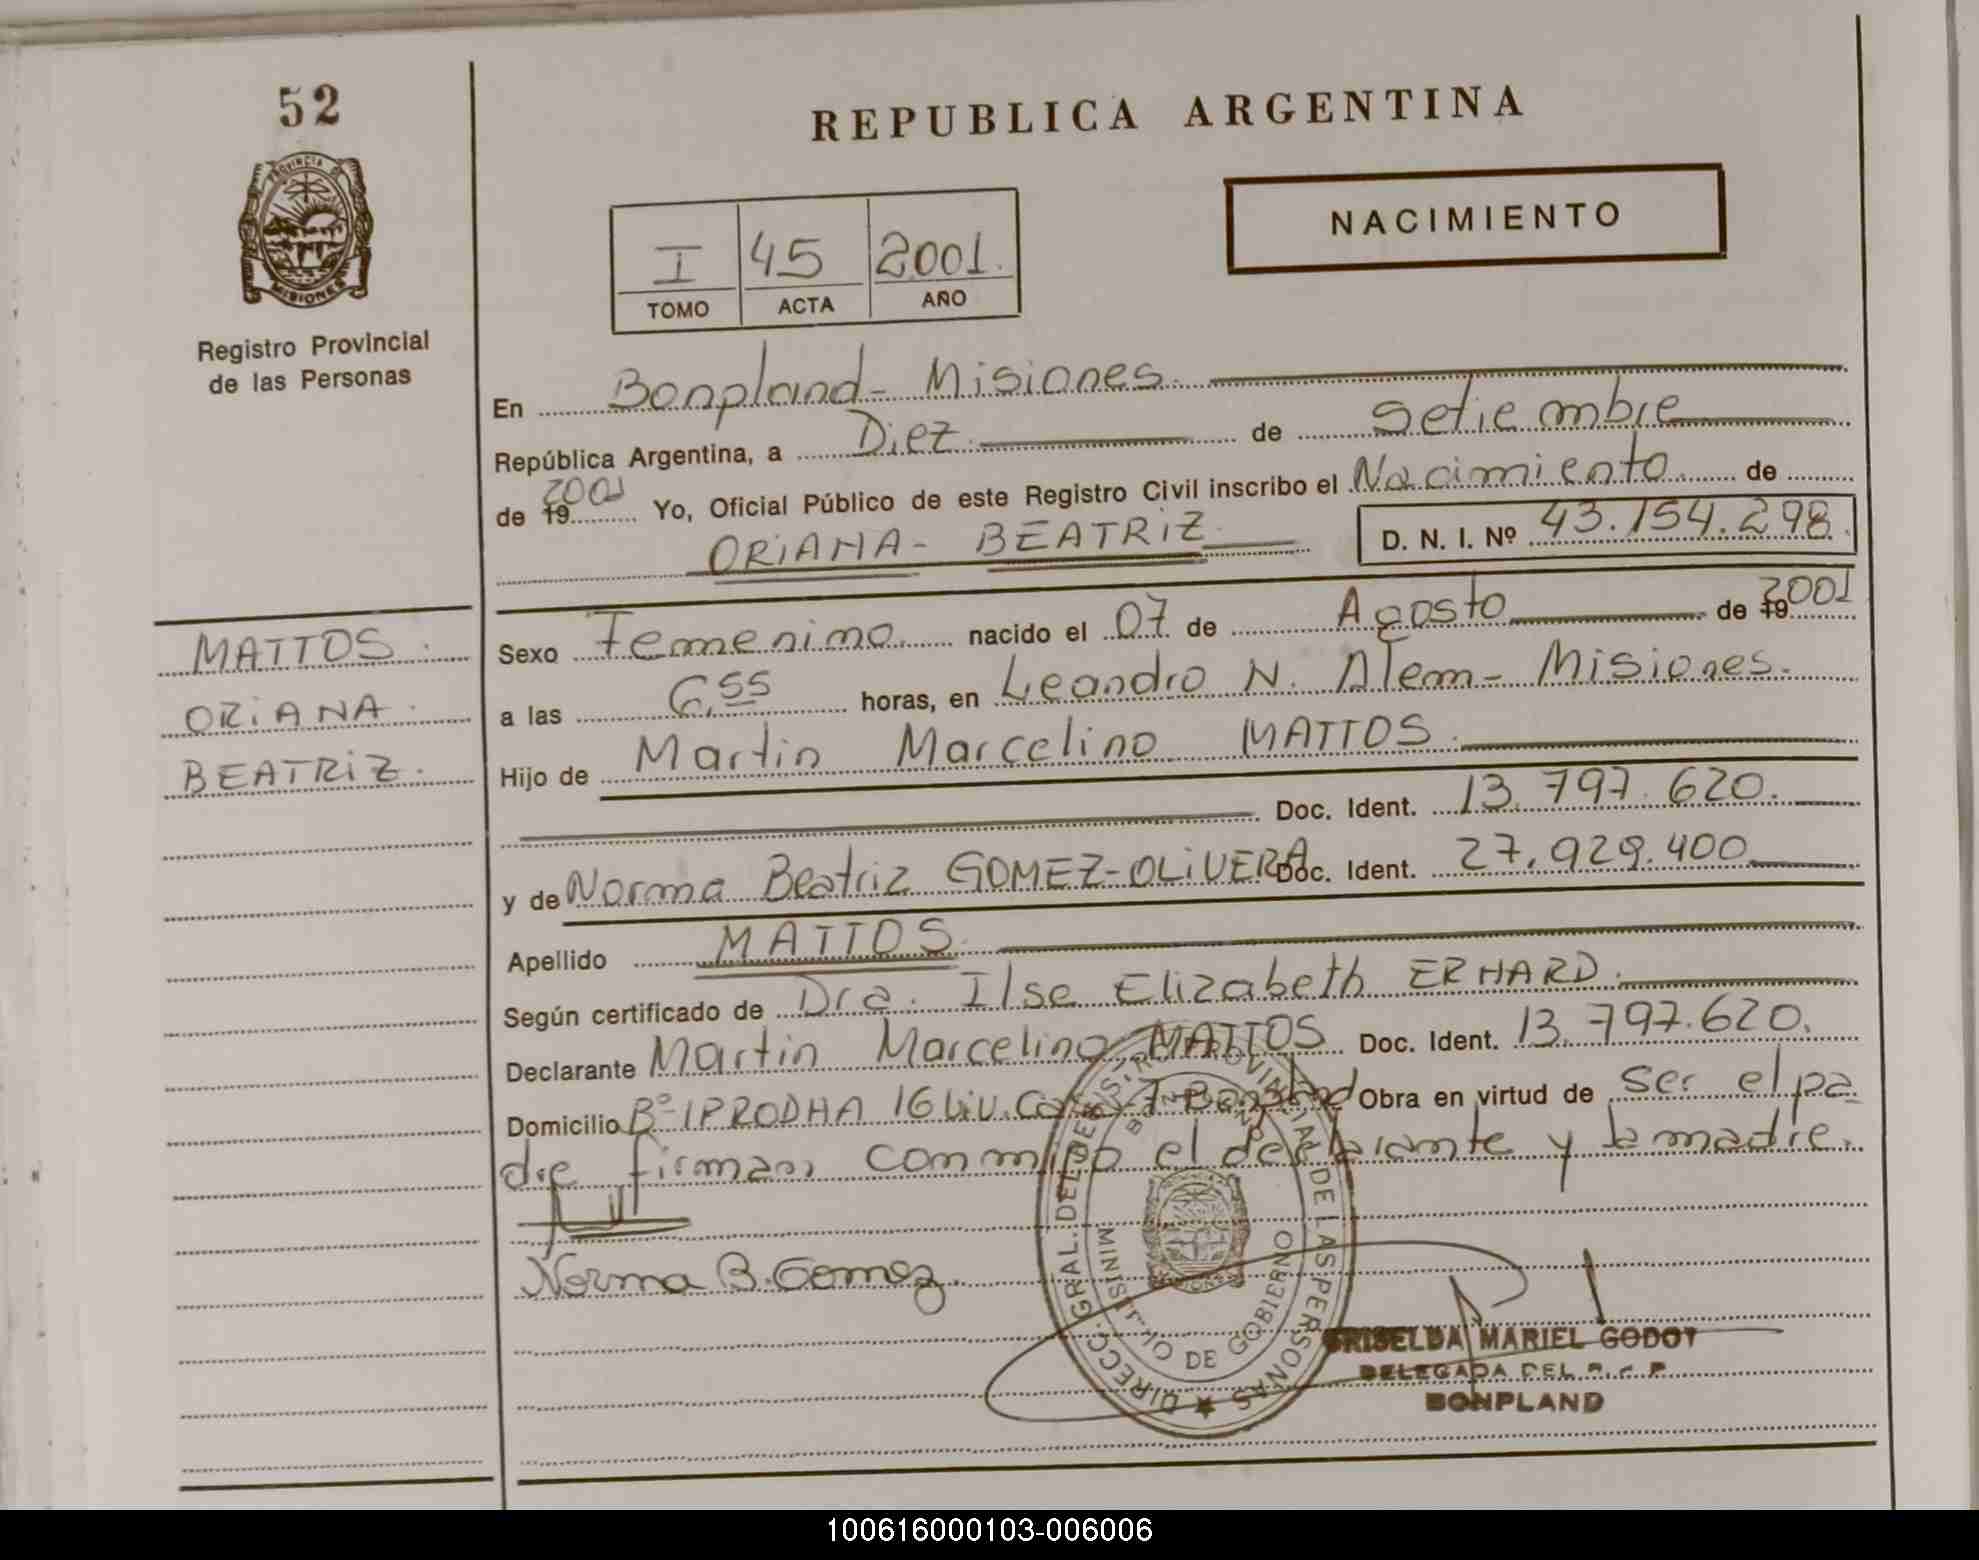 52
PROVINCIA DE
MISIONES
Registro Provincial
de las Personas
REPUBLICA ARGENTINA
NACIMIENTO
I 45 2001.
TOMO ACTA AÑO
En Bonpland - Misiones.
República Argentina, a Diez de Setiembre
de 19 2001 Yo, Oficial Público de este Registro Civil inscribo el Nacimiento de
ORIANA - BEATRIZ D. N. I. Nº 43.154.298.
MATTOS.
ORIANA.
BEATRIZ.
Sexo Femenino. nacido el 07 de Agosto de 19 2001
a las 6,55 horas, en Leandro N. Alem - Misiones.
Hijo de Martin Marcelino MATTOS.
Doc. Ident. 13.797.620.
y de Norma Beatriz GOMEZ-OLIVERA Doc. Ident. 27.929.400
Apellido MATTOS.
Según certificado de Dra. Ilse Elizabeth ERHARD.
Declarante Martin Marcelino MATTOS Doc. Ident. 13.797.620.
Domicilio Bº IPRODHA 16 Viv. Bonpland Obra en virtud de ser el pa
dre firman conmigo el declarante y la madre.
Norma B. Gomez.
DIRECC. GRAL. DEL REGISTRO PROVINCIAL DE LAS PERSONAS
MINISTERIO DE GOBIERNO
BONPLAND
GRISELDA MARIEL GODOY
DELEGADA DEL R. P. P.
BONPLAND
100616000103-006006